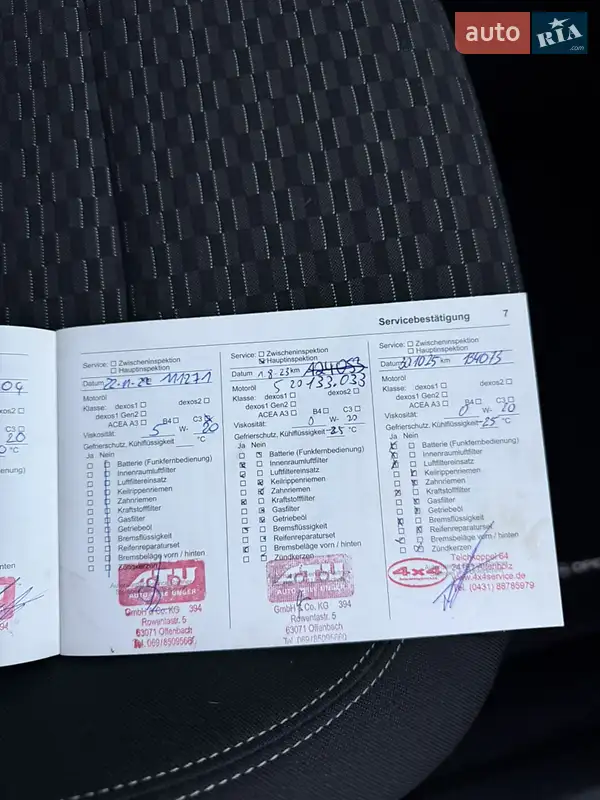 auto RIA .com
Servicebestätigung 7
Service: Zwischeninspektion
Hauptinspektion
Datum 111271
Motoröl
Klasse: dexos1 dexos2
dexos1 Gen2
ACEA A3 B4 C3
Viskosität: 5 W- 20
Gefrierschutz, Kühlflüssigkeit °C
Ja Nein
Batterie (Funkfernbedienung)
Innenraumluftfilter
Luftfiltereinsatz
Keilrippenriemen
Zahnriemen
Kraftstofffilter
Gasfilter
Getriebeöl
Bremsflüssigkeit
Reifenreparaturset
Bremsbeläge vorn / hinten
ATU
AUTO-TEILE UNGER
GmbH & Co. KG 394
Rowentastr. 5
63071 Offenbach
Service: Zwischeninspektion
Hauptinspektion
Datum 1.8.23 km 124053
Motoröl 5 20 133.033
Klasse: dexos1 dexos2
dexos1 Gen2
ACEA A3 B4 C3
Viskosität: 0 W- 20
Gefrierschutz, Kühlflüssigkeit -25 °C
Ja Nein
Batterie (Funkfernbedienung)
Innenraumluftfilter
Luftfiltereinsatz
Keilrippenriemen
Zahnriemen
Kraftstofffilter
Gasfilter
Getriebeöl
Bremsflüssigkeit
Reifenreparaturset
Bremsbeläge vorn / hinten
Zündkerzen
ATU
GmbH & Co. KG 394
Rowentastr. 5
63071 Offenbach
Service: Zwischeninspektion
Hauptinspektion
Datum km
Motoröl
Klasse: dexos1 dexos2
dexos1 Gen2
ACEA A3 B4 C3
Viskosität: 0 W- 20
Gefrierschutz, Kühlflüssigkeit -25 °C
Ja Nein
Batterie (Funkfernbedienung)
Innenraumluftfilter
Luftfiltereinsatz
Keilrippenriemen
Zahnriemen
Kraftstofffilter
Gasfilter
Getriebeöl
Bremsflüssigkeit
Reifenreparaturset
Bremsbeläge vorn / hinten
Zündkerzen
4x4
Teichkoppel 64
www.4x4service.de
Tel. (0431) 88785979